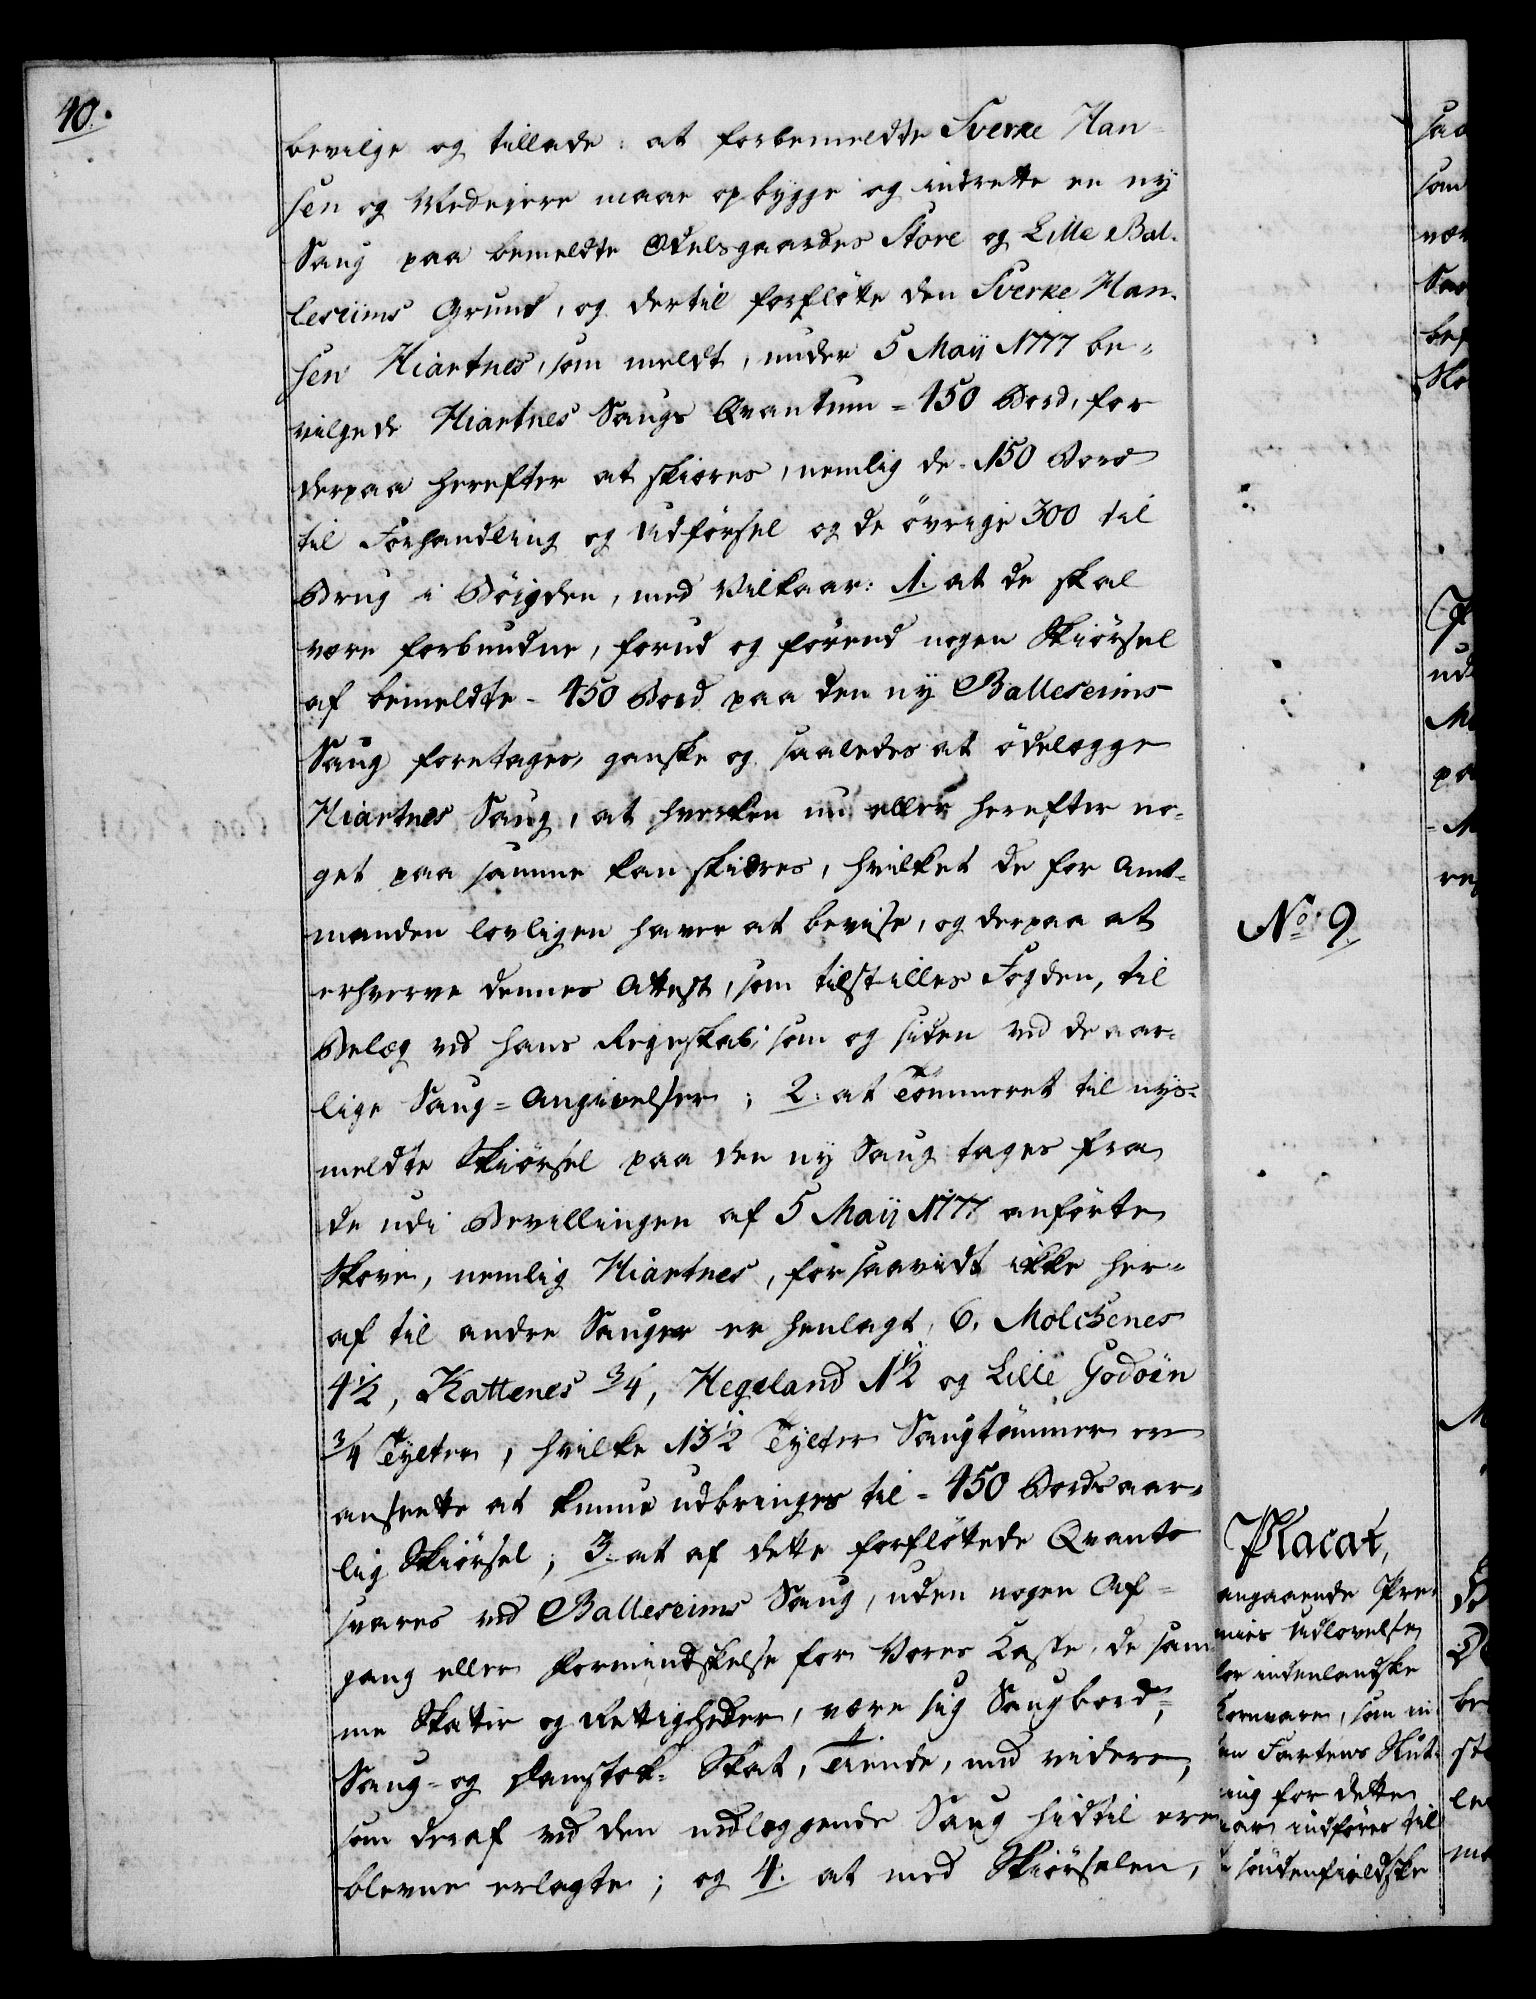 40.
bevilge og tillade: at forbemeldte Sverke Han-
sen og Medeiere maae opbygge og indrette en ny
Saug paa bemeldte Odelsgaardes Store og Lille Bal-
leseims Grund, og dertil forfløtte den Sverke Han-
sen Hiartnes, som meldt, under 5 Maÿ 1777 be-
vilgede Hiartnes Saugs Qvantum = 450 Bord, for
derpaa herefter at skiæres, nemlig de 150 Bord
til Forhandling og Udførsel og de øvrige 300 til
Brug i Bøigden, med Vilkaar: 1. at de skal
være forbundne, forud og førend nogen Skiørsel
af bemeldte - 450 Bord paa den ny Balleseims
Saug foretages, ganske og saaledes at ødelægge
Hiartnes Saug, at hverken nu eller herefter no-
get paa samme kan skiæres, hvilket de for Amt-
manden lovligen haver at bevise, og derpaa at
erhverve dennes Attest, som tilstilles Fogden, til
Belæg ved hans Regnskab, som og siden ved de aar-
lige Saug-Angivelser; 2. at Tømmeret til nys-
meldte Skiørsel paa den ny Saug tages fra
de udi Bevillingen af 5 Maÿ 1777 anførte
Skove, nemlig Hiartnes, forsaavidt ikke her-
af til andre Sauger er henlagt, 6, Molchenes
4½, Kattenes ¾, Hegeland 1½ og Lille Godøen
¾ Tÿlter, hvilke 13½ Tÿlter Saugtømmer er
ansette at kunne udbringes til = 450 Bords aar-
lig Skiørsel; 3. at af dette forfløttede Qvanto
svares ved Balleseims Saug, uden nogen Af-
gang eller Formindskelse for Vores Casse, de sam-
me Skatter og Rettigheder, være sig Saugbord-,
Saug- og Damstok-Skat, Tiende, med videre,
som deraf ved den nedlæggende Saug hidtil ere
blevne erlagte; og 4. at med Skiørselen,
No. 9.
Placat,
angaaende Præ-
mies Udlovelse
for indenlandske
Kornvare, som in-
den Fartens Slut-
ning for dette
Aar indføres til
søndenfieldske